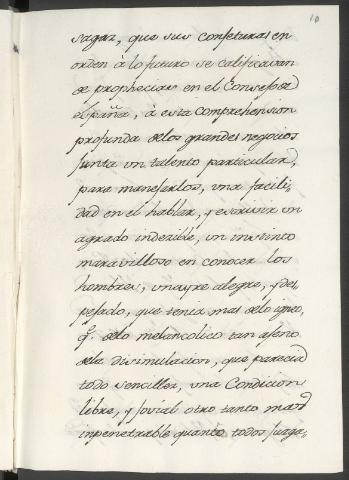 10
sagaz, que sus confeturas en
orden à lo futuro se calificavan
de prophecias en el Consejo d
España, à esta comprehension
profunda delos grandes negocios
junta un talento particular,
para manejarlos, una facili-
dad en el hablar, y escrivir un
agrado indezible, un instinto
maravilloso en conocer los
hombres, un ayre alegre, y des
pejado, que tenia mas delo igneo,
q.e delo melancolico tan ageno
dela disimulacion, que parecia
todo sencillez, una Condicion
libre, y jovial otro tanto mas
inpenetrable quanto todos juzga-